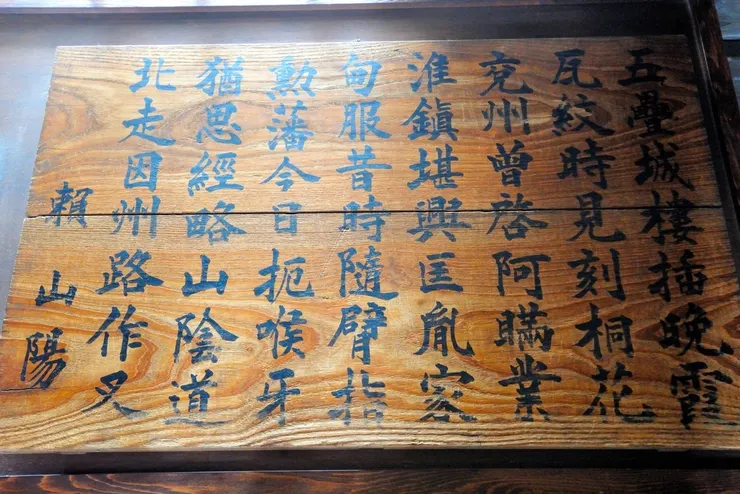 五疊城樓插晚霞
瓦紋時見刻桐花
兗州曾啓阿瞞業
淮鎭堪興匡胤家
甸服昔時隨臂指
勲藩今日扼喉牙
猶思經略山陰道
北走因州路作叉
賴山陽